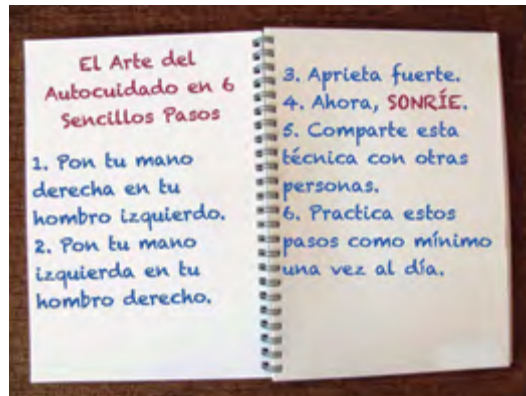 El Arte del
Autocuidado en 6
Sencillos Pasos
1. Pon tu mano
derecha en tu
hombro izquierdo.
2. Pon tu mano
izquierda en tu
hombro derecho.
3. Aprieta fuerte.
4. Ahora, SONRÍE.
5. Comparte esta
técnica con otras
personas.
6. Practica estos
pasos como mínimo
una vez al día.